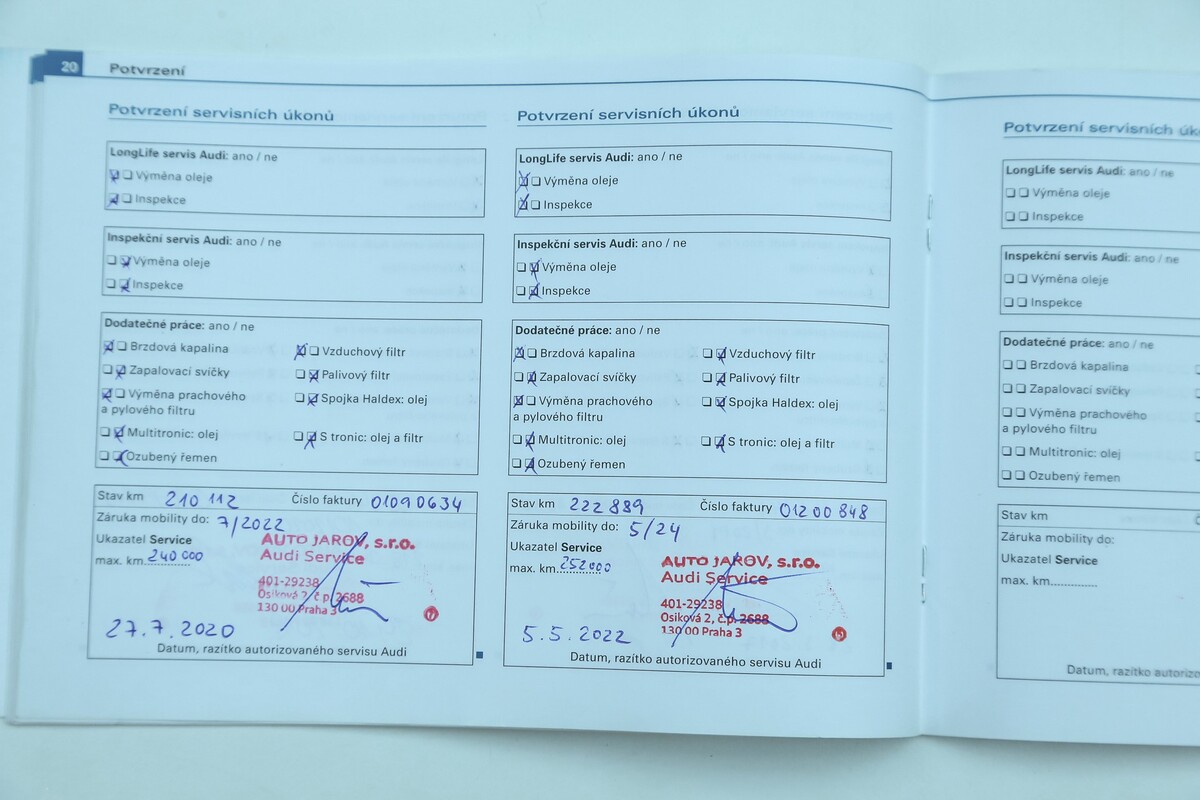 20 Potvrzení
Potvrzení servisních úkonů
LongLife servis Audi: ano / ne
Výměna oleje
Inspekce
Inspekční servis Audi: ano / ne
Výměna oleje
Inspekce
Dodatečné práce: ano / ne
Brzdová kapalina Vzduchový filtr
Zapalovací svíčky Palivový filtr
Výměna prachového Spojka Haldex: olej
a pylového filtru
Multitronic: olej S tronic: olej a filtr
Ozubený řemen
Stav km 210 112 Číslo faktury 01090634
Záruka mobility do: 7/2022
Ukazatel Service
max. km 240 000
AUTO JAROV, s.r.o.
Audi Service
401-29238
Osiková 2, č.p. 2688
130 00 Praha 3
27.7.2020
Datum, razítko autorizovaného servisu Audi
Potvrzení servisních úkonů
LongLife servis Audi: ano / ne
Výměna oleje
Inspekce
Inspekční servis Audi: ano / ne
Výměna oleje
Inspekce
Dodatečné práce: ano / ne
Brzdová kapalina Vzduchový filtr
Zapalovací svíčky Palivový filtr
Výměna prachového Spojka Haldex: olej
a pylového filtru
Multitronic: olej S tronic: olej a filtr
Ozubený řemen
Stav km 222 889 Číslo faktury 01200848
Záruka mobility do: 5/24
Ukazatel Service
max. km 252000
AUTO JAROV, s.r.o.
Audi Service
401-29238
Osiková 2, č.p. 2688
130 00 Praha 3
5.5.2022
Datum, razítko autorizovaného servisu Audi
Potvrzení servisních
LongLife servis Audi: ano / ne
Výměna oleje
Inspekce
Inspekční servis Audi: ano / ne
Výměna oleje
Inspekce
Dodatečné práce: ano / ne
Brzdová kapalina
Zapalovací svíčky
Výměna prachového
a pylového filtru
Multitronic: olej
Ozubený řemen
Stav km
Záruka mobility do:
Ukazatel Service
max. km
Datum, razítko